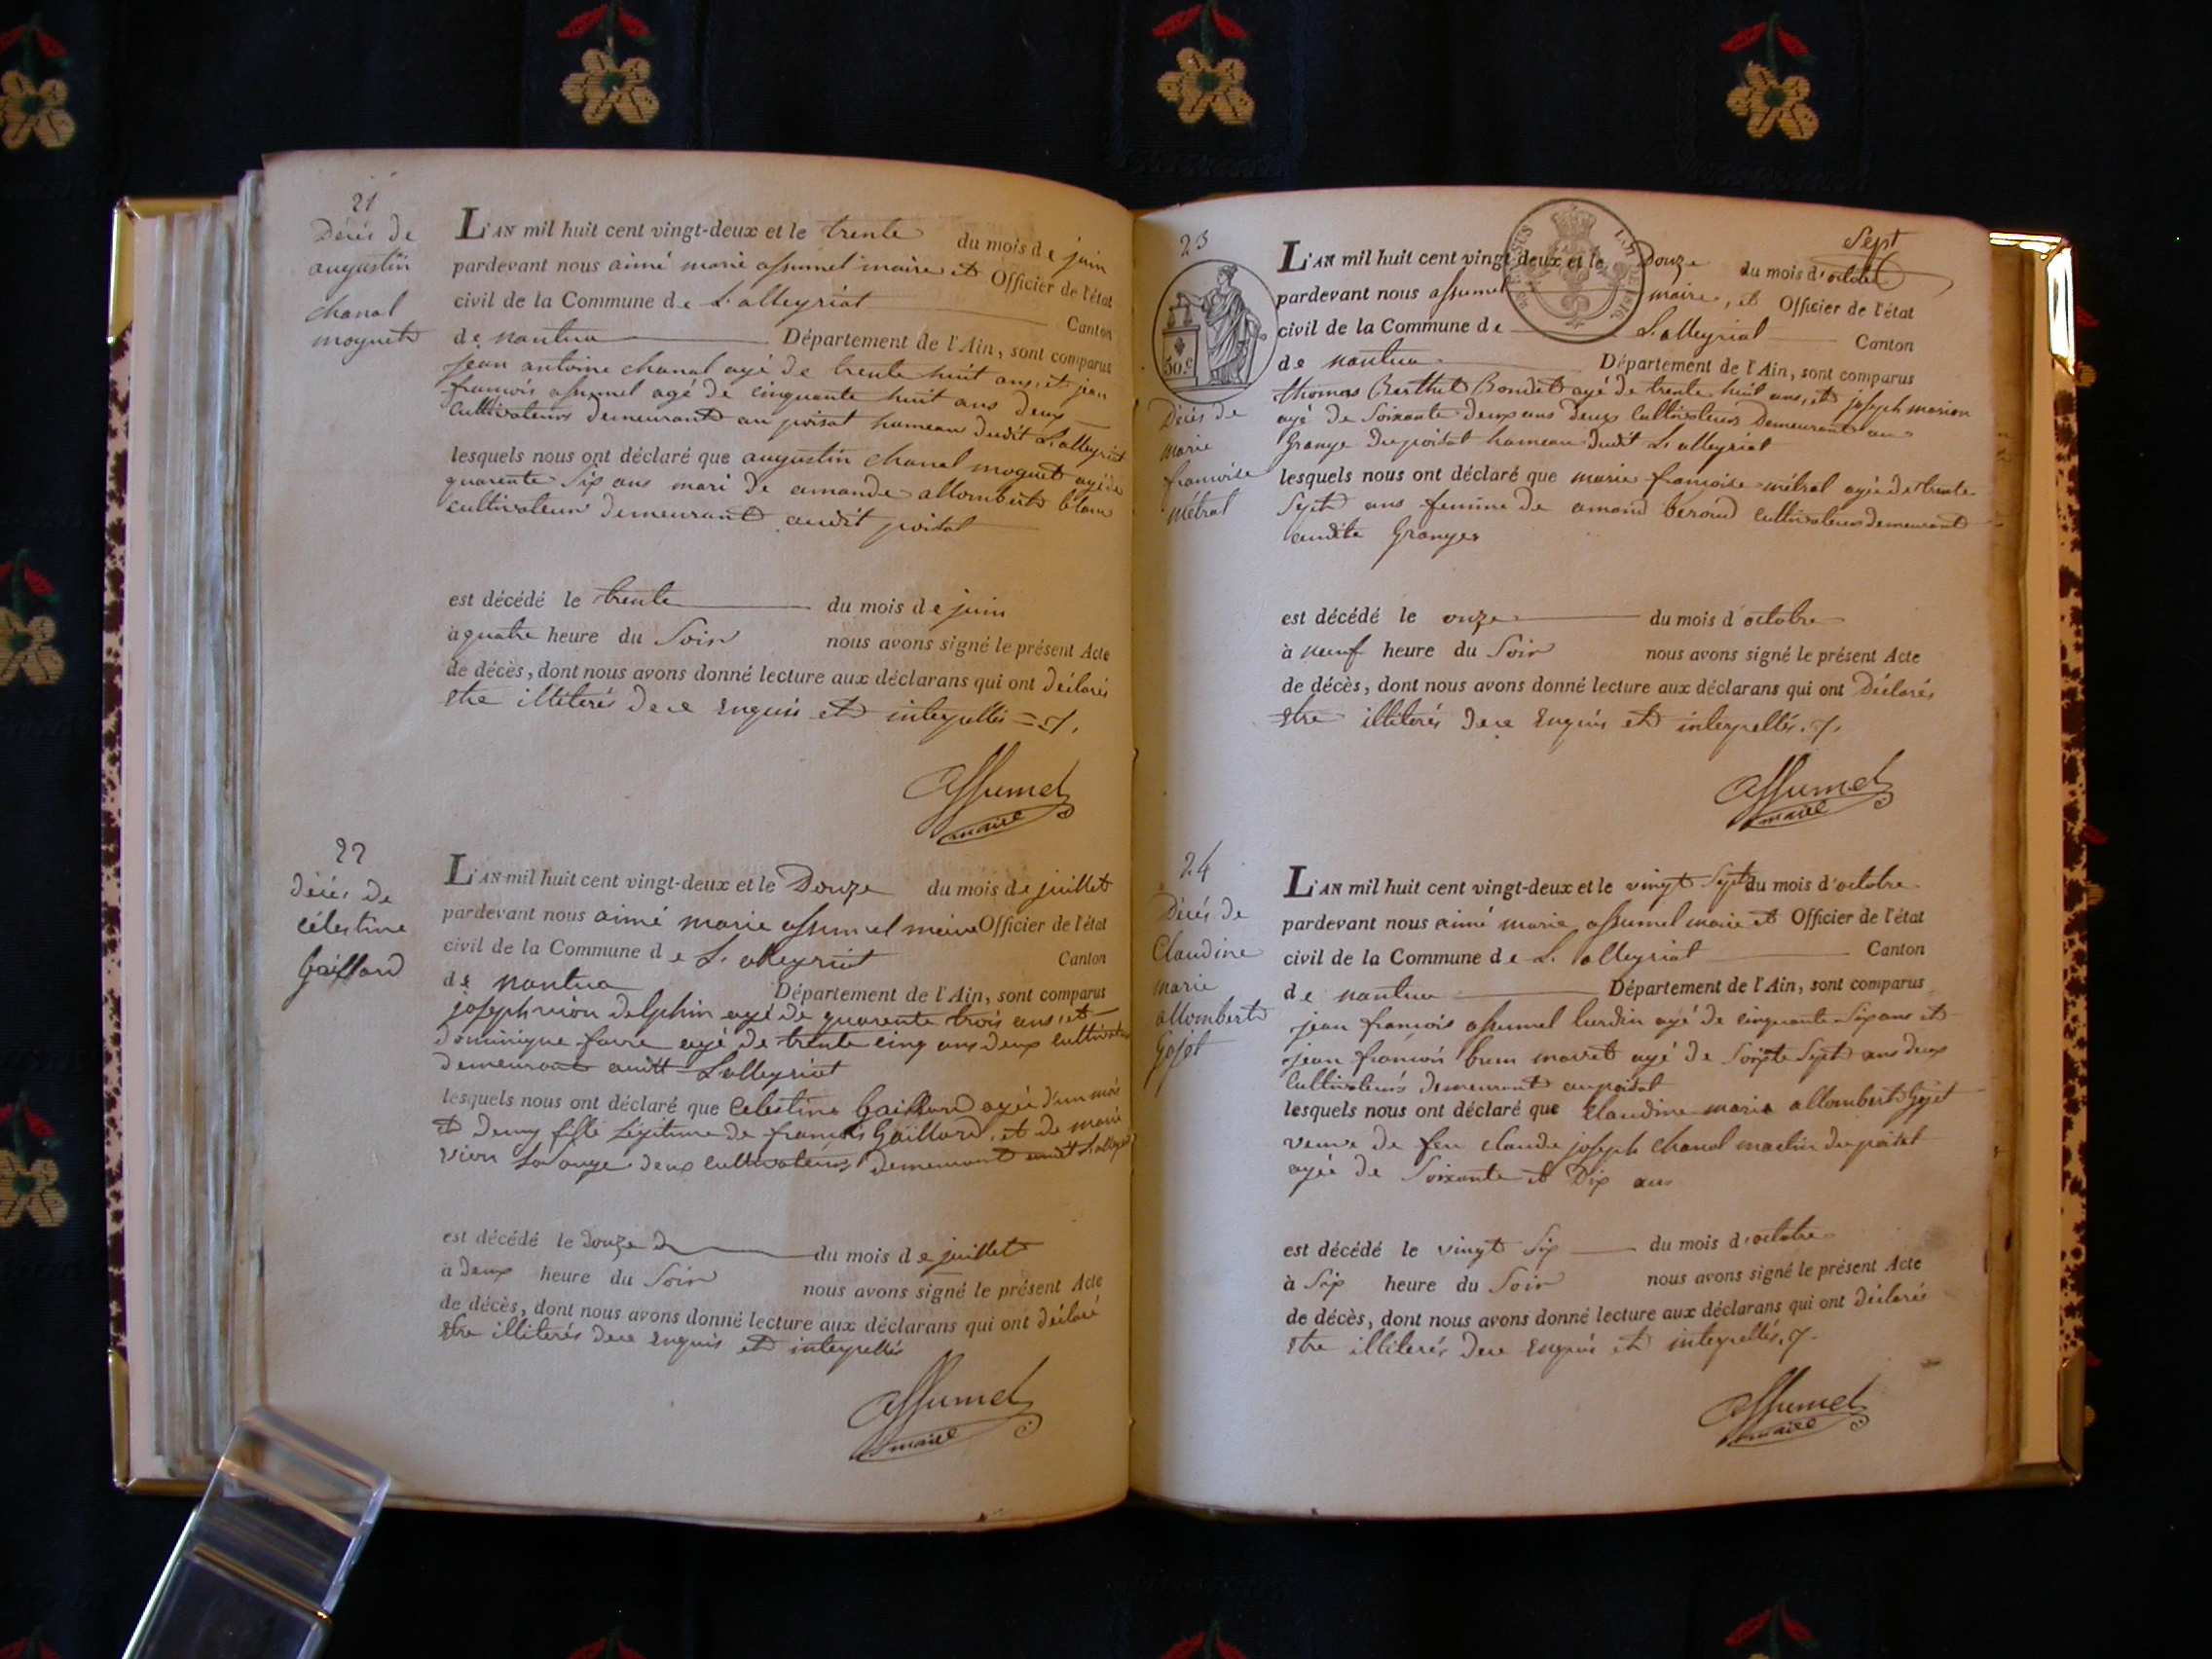 21
Décés de
augustin
chanal
moguet
L'AN mil huit cent vingt-deux et le trente du mois de juin
pardevant nous aimé marie assumel maire et Officier de l'état
civil de la Commune de L'alleyriat Canton
de nantua Département de l'Ain, sont comparus
jean antoine chanal agé de trente huit ans, et jean
françois assumel agé de cinquante huit ans deux
cultivateurs demeurant au poisat hameau dudit L'alleyriat
lesquels nous ont déclaré que augustin chanal moguet agé de
quarente six ans mari de amande allombert blanc
cultivateur demeurant audit poisat
est décédé le trente du mois de juin
à quatre heure du soir nous avons signé le présent Acte
de décès, dont nous avons donné lecture aux déclarans qui ont déclarés
etre illiterés de ce enquis et interpellés
assumel
maire
22
Décés de
célestine
Gaillard
L'AN mil huit cent vingt-deux et le Douze du mois de juillet
pardevant nous aimé marie assumel maire Officier de l'état
civil de la Commune de L'alleyriat Canton
de nantua Département de l'Ain, sont comparus
joseph vion delphin agé de quarente trois ans, et
dominique favre agé de trente cinq ans deux cultivateurs
demeurant audit L'alleyriat
lesquels nous ont déclaré que Celestine Gaillard agée d'un mois
et demy fille légitime de françois Gaillard, et de marie
vion deux cultivateurs demeurant audit L'alleyriat
est décédé le douze du mois de juillet
à deux heure du soir nous avons signé le présent Acte
de décès, dont nous avons donné lecture aux déclarans qui ont déclaré
etre illiterés de ce enquis et interpellés
assumel
maire
23
Sept
30.c
Décés de
marie
françoise
métral
L'AN mil huit cent vingt-deux et le Douze du mois d'octobre
pardevant nous assumel maire, et Officier de l'état
civil de la Commune de L'alleyriat Canton
de nantua Département de l'Ain, sont comparus
thomas Berthet Bondet agé de trente huit ans, et joseph marion
agé de soixante deux ans deux cultivateurs demeurant au
Grange du poisat hameau dudit L'alleyriat
lesquels nous ont déclaré que marie françoise métral agée de trente
sept ans femme de amand beroud cultivateur demeurant
audite Granges
est décédé le onze du mois d'octobre
à neuf heure du soir nous avons signé le présent Acte
de décès, dont nous avons donné lecture aux déclarans qui ont Déclarés
etre illiterés de ce enquis et interpellés
assumel
maire
24
Décés de
Claudine
marie
allombert
Gojet
L'AN mil huit cent vingt-deux et le vingt sept du mois d'octobre
pardevant nous aimé marie assumel maire et Officier de l'état
civil de la Commune de L'alleyriat Canton
de nantua Département de l'Ain, sont comparus
jean françois assumel lurdin agé de cinquante six ans et
jean françois brun agé de sept ans deux
cultivateurs demeurant au poisat
lesquels nous ont déclaré que Claudine marie allombert Gojet
veuve de feu claude joseph chanal du poisat
agée de soixante et Dix ans
est décédé le vingt six du mois d'octobre
à six heure du soir nous avons signé le présent Acte
de décès, dont nous avons donné lecture aux déclarans qui ont déclarés
etre illiterés de ce enquis et interpellés
assumel
maire